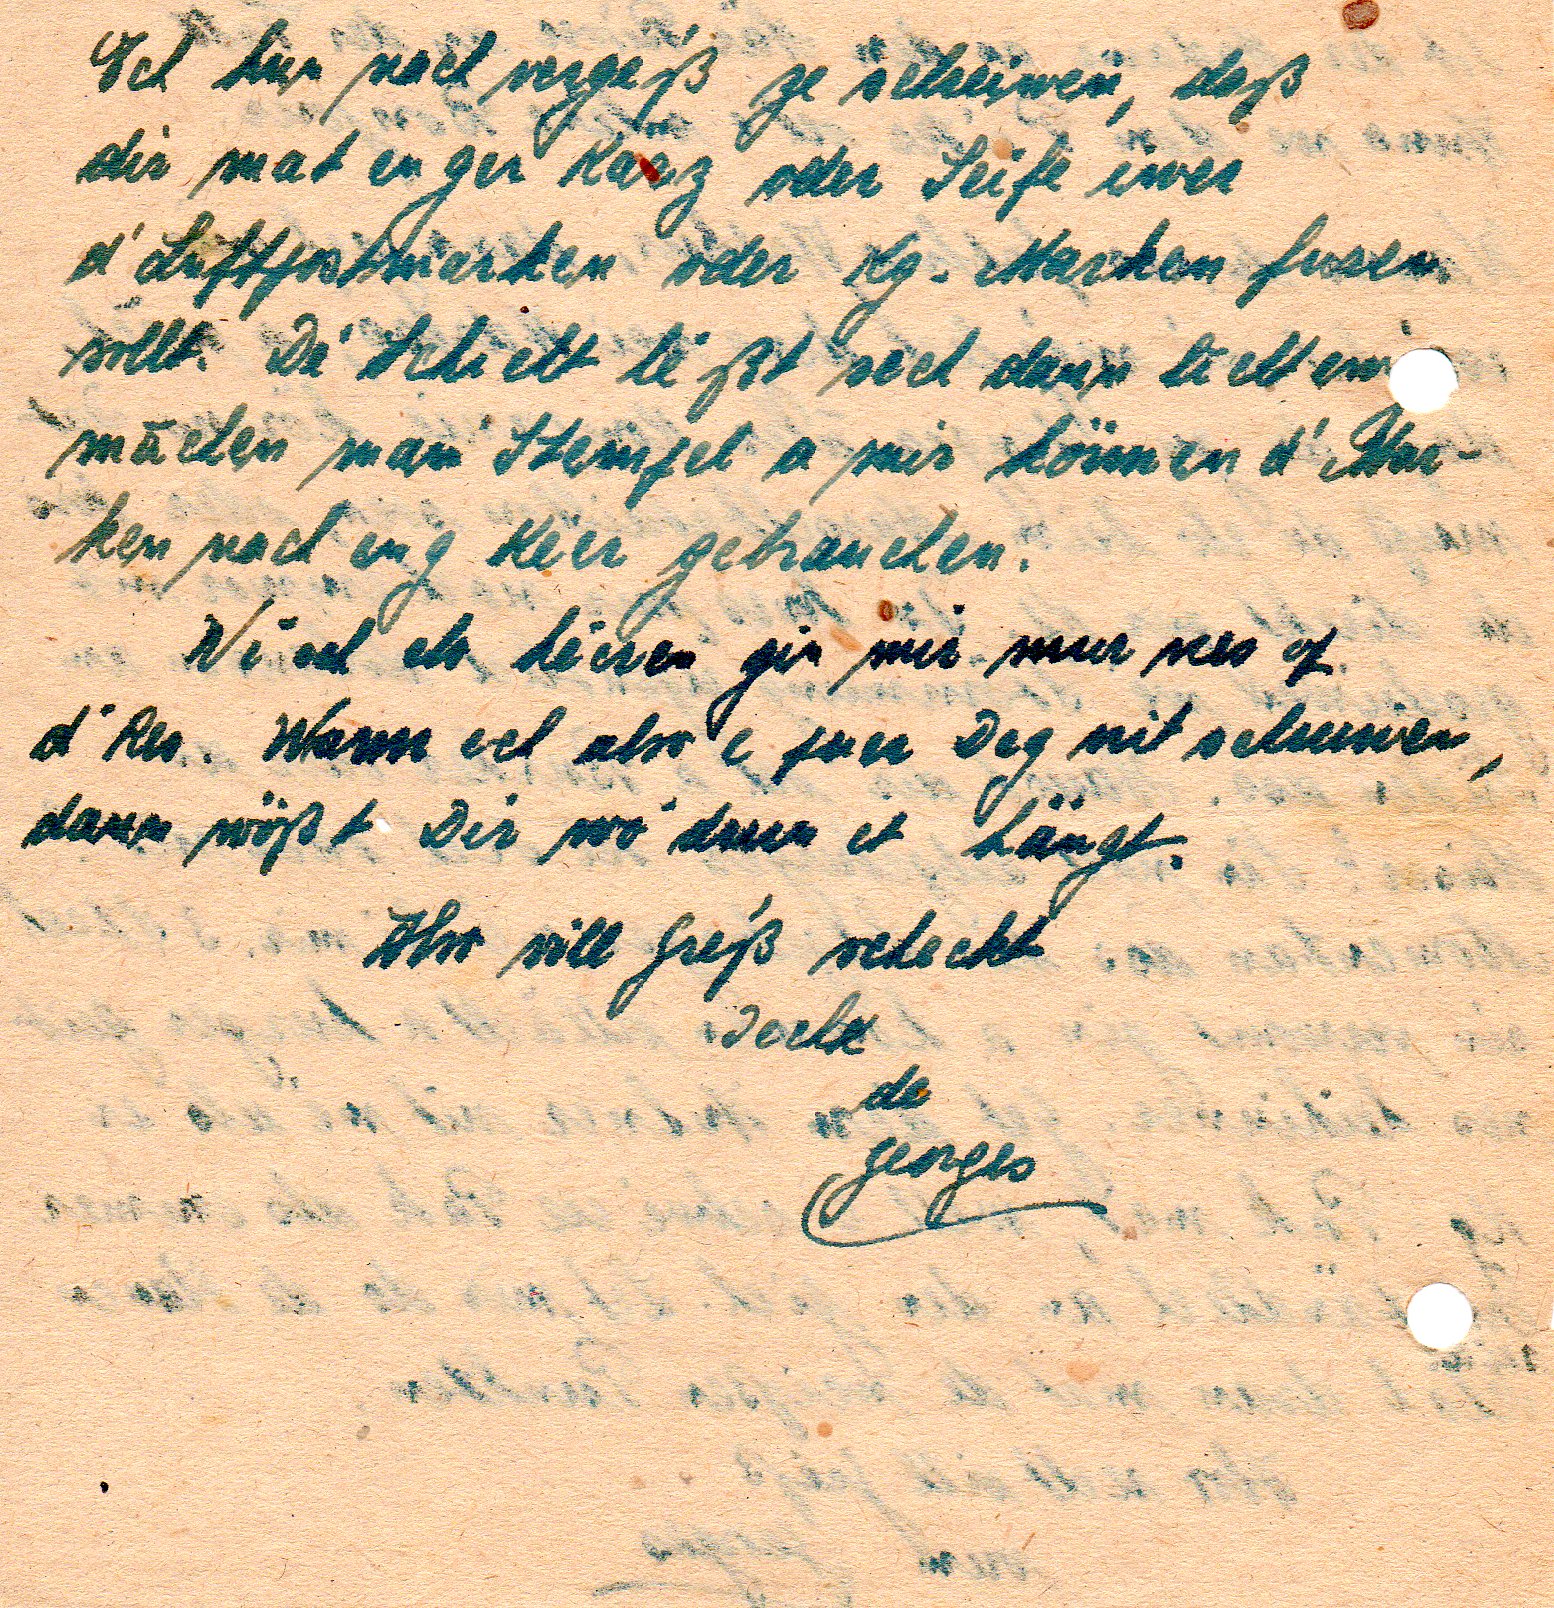 Ech hun noch vergieß ze schreiwen, daß
dir mat enger Käerz oder Seife iwer
d'Luftpostmarken oder Kg. Marken fueren
sollt. Dé Schicht léßt sech dann liicht em
mächen mam Stempel a mir können d'Mar-
ken nach eng Kéer gebrauchen.
Wi ech els héieren gin mir muer nes of
d'Res. Wann ech also e puer Deg nit schreiwen,
dann wößt Dir wo'drun et hängt.
Also vill Greß scheckt
Iech
de
Georges